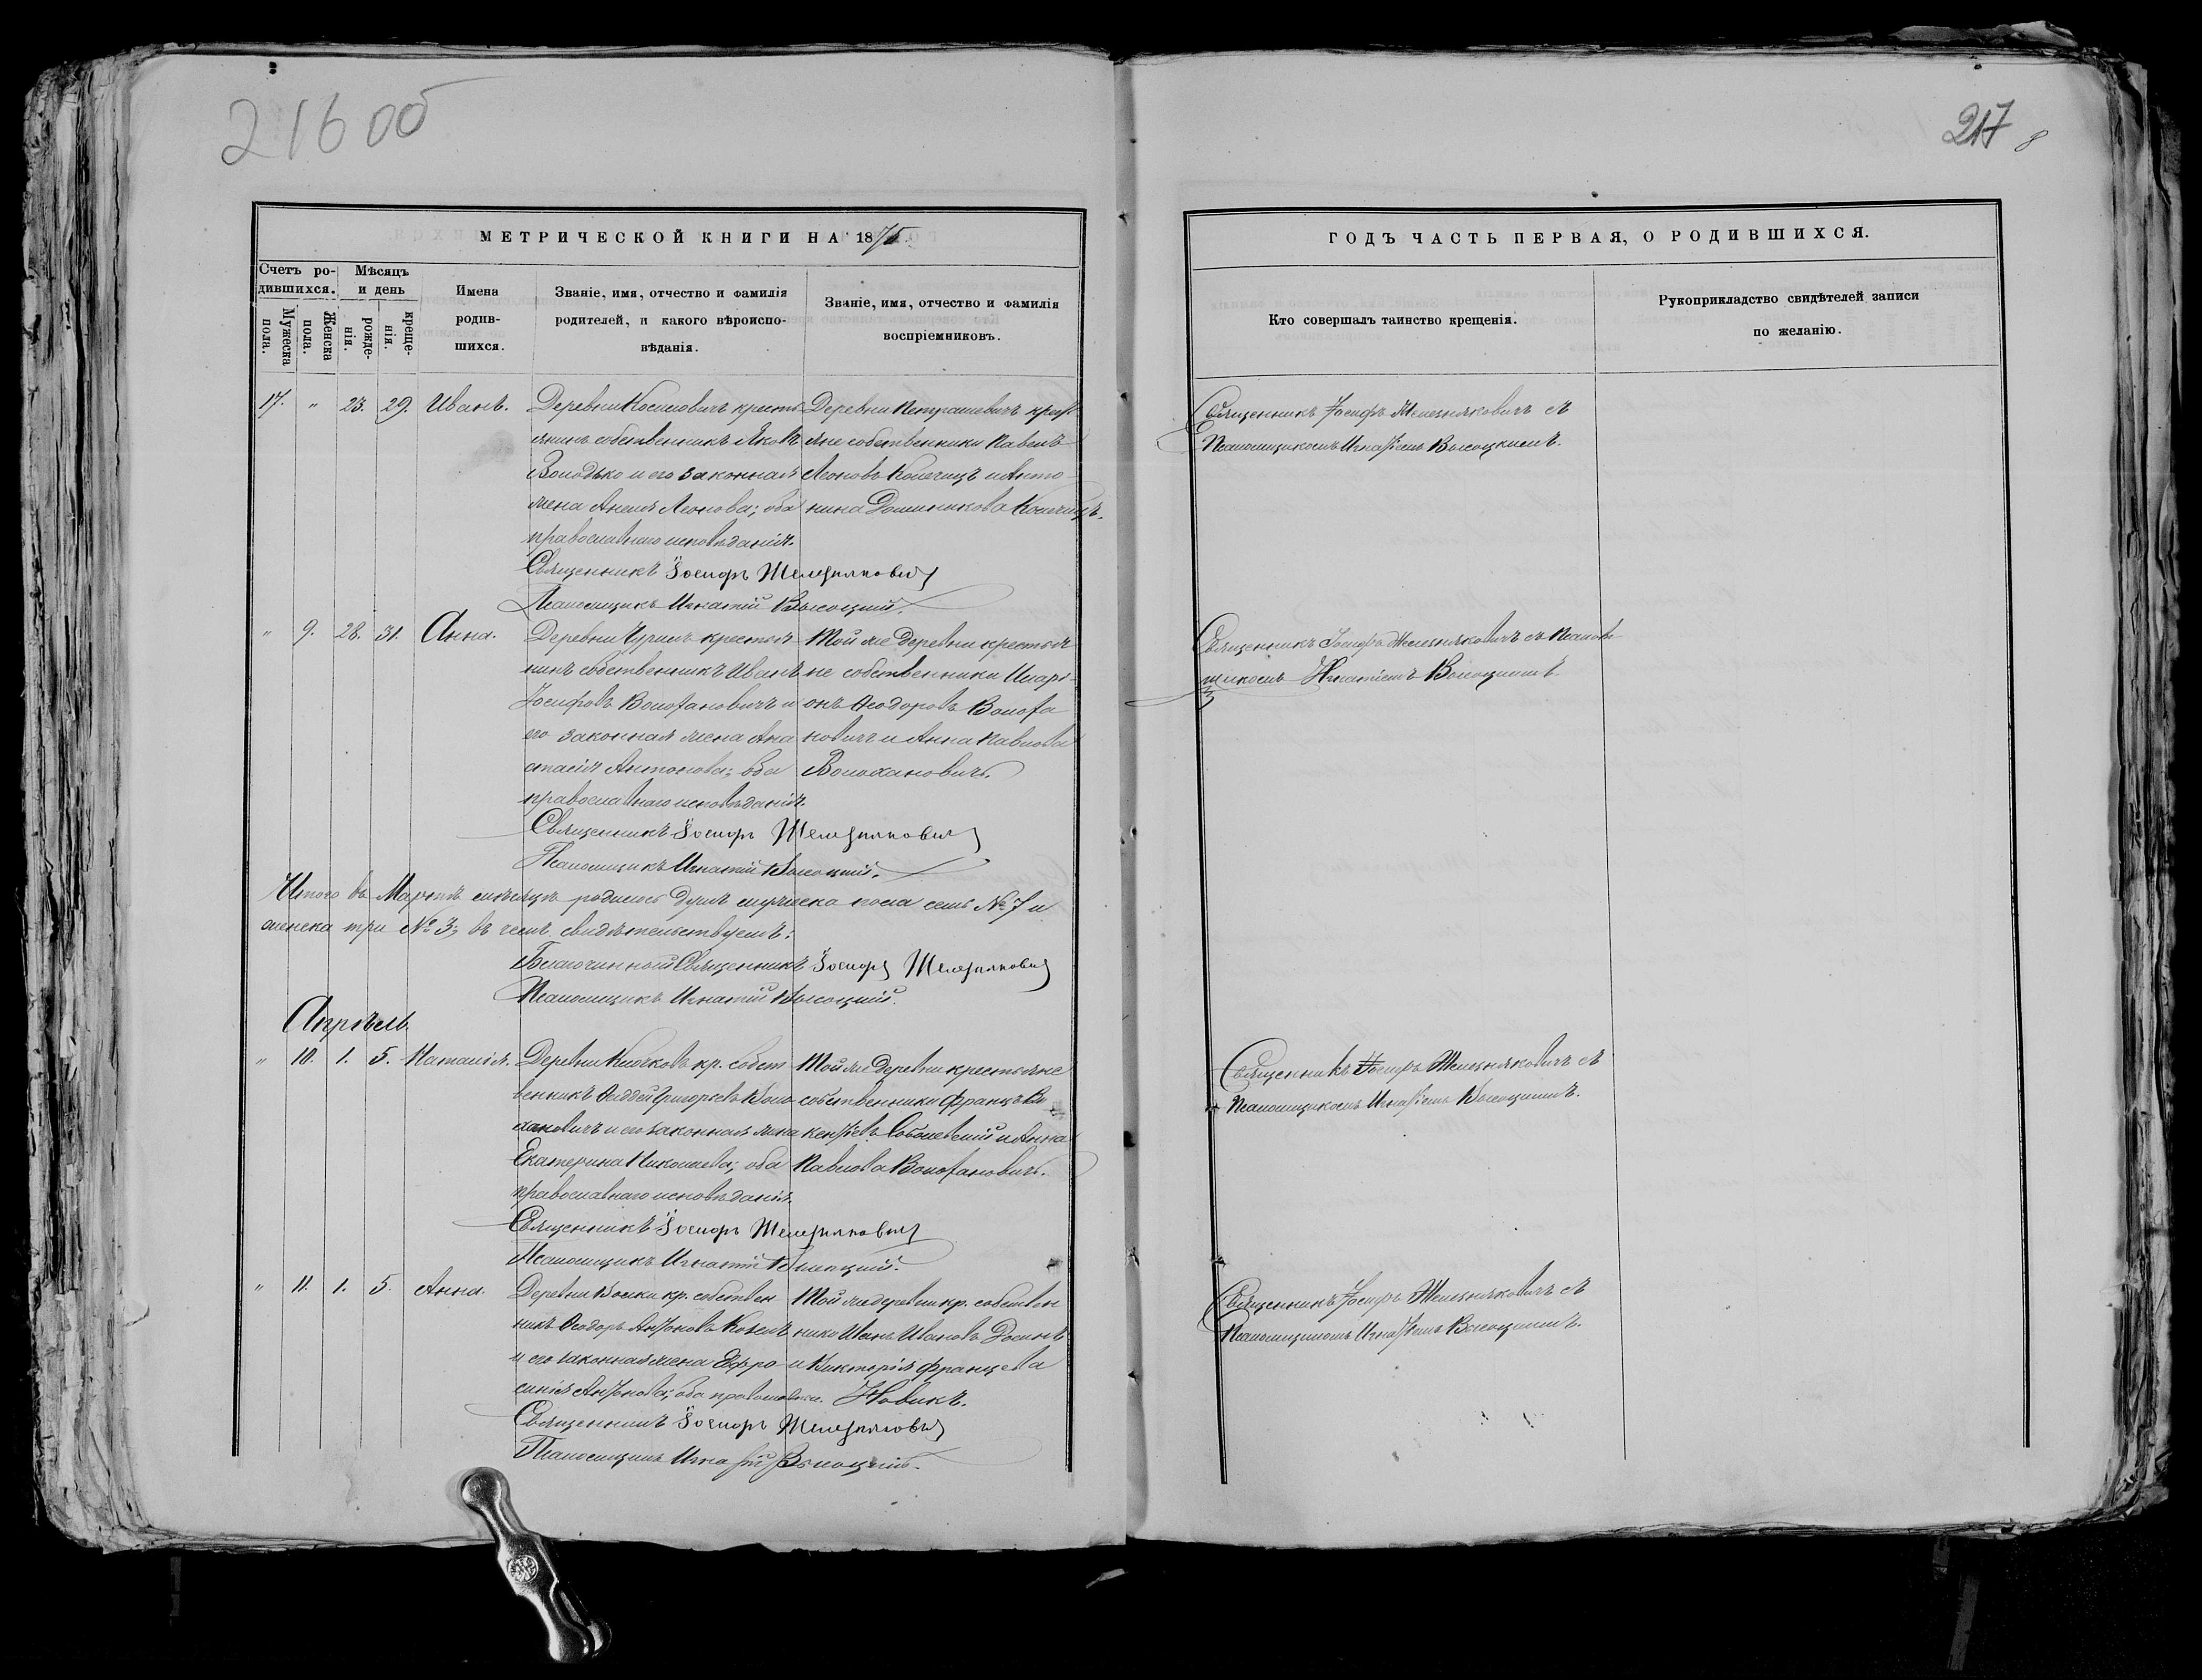 216 об
217
8
МЕТРИЧЕСКОЙ КНИГИ НА 1875.
Счетъ ро-
дившихся.
Мѣсяцъ
и день
Мужеска
пола.
Женска
пола.
рожде-
нія.
креще-
нія.
Имена
родив-
шихся.
Званіе, имя, отчество и фамилія
родителей, и какого вѣроиспо-
вѣданія.
Званіе, имя, отчество и фамилія
воспріемниковъ.
17. " 23. 29. Иванъ.
Деревни кресть
янинъ собственникъ Яковъ
Володько и его законная
жена Леонова; оба
православнаго исповѣданія.
Священникъ Іосифъ Железняковичъ
Псаломщикъ Игнатій Высоцкій.
Деревни Петрашевичъ кресть
яне собственники Павелъ
Леоновъ и Анто
нина Доминикова
" 9. 28. 31. Анна.
Деревни крестья
нинъ собственникъ Иванъ
Іосифовъ Волоханович и
его законная жена Ана
стасія Антонова; оба
православнаго исповѣданія.
Священникъ Іосифъ Железняковичъ
Псаломщикъ Игнатій Высоцкій.
Той же деревни крестья
не собственники Илари
онъ Ѳеодоровъ Волоха
новичъ и Анна Павлова
Волохановичъ.
Итого въ Мартѣ мѣсяцѣ родилось душъ мужеска пола семь № 7 и
женска три № 3; въ чемъ свидѣтельствуемъ:
Благочинный Священникъ Іосифъ Железняковичъ
Псаломщикъ Игнатій Высоцкій.
Апрѣль.
" 10. 1. 5. Наталія.
Деревни кр. собст
венникъ Ѳаддей Григорьевъ Воло
хановичъ и его законная жена
Екатерина Николаева; оба
православнаго исповѣданія.
Священникъ Іосифъ Железняковичъ
Псаломщикъ Игнатій Высоцкій.
Той же деревни крестьяне
собственники Францъ Ви
кентіевъ Соболевскій и Анна
Павлова Волохановичъ.
" 11. 1. 5. Анна.
Деревни кр. собствен
никъ Ѳеодоръ Антоновъ
и его законная жена Ефро
синія Антонова; оба православн.
Священникъ Іосифъ Железняковичъ
Псаломщикъ Игнатій Высоцкій.
Той же деревни кр. собствен
ники Иванъ Ивановъ
и Викторія Францева
Новикъ.
ГОДЪ ЧАСТЬ ПЕРВАЯ, О РОДИВШИХСЯ.
Кто совершалъ таинство крещенія.
Рукоприкладство свидѣтелей записи
по желанію.
Священникъ Іосифъ Железняковичъ съ
Псаломщикомъ Игнатіемъ Высоцкимъ.
Священникъ Іосифъ Железняковичъ съ Псалом
щикомъ Игнатіемъ Высоцкимъ.
Священникъ Іосифъ Железняковичъ съ
Псаломщикомъ Игнатіемъ Высоцкимъ.
Священникъ Іосифъ Железняковичъ съ
Псаломщикомъ Игнатіемъ Высоцкимъ.